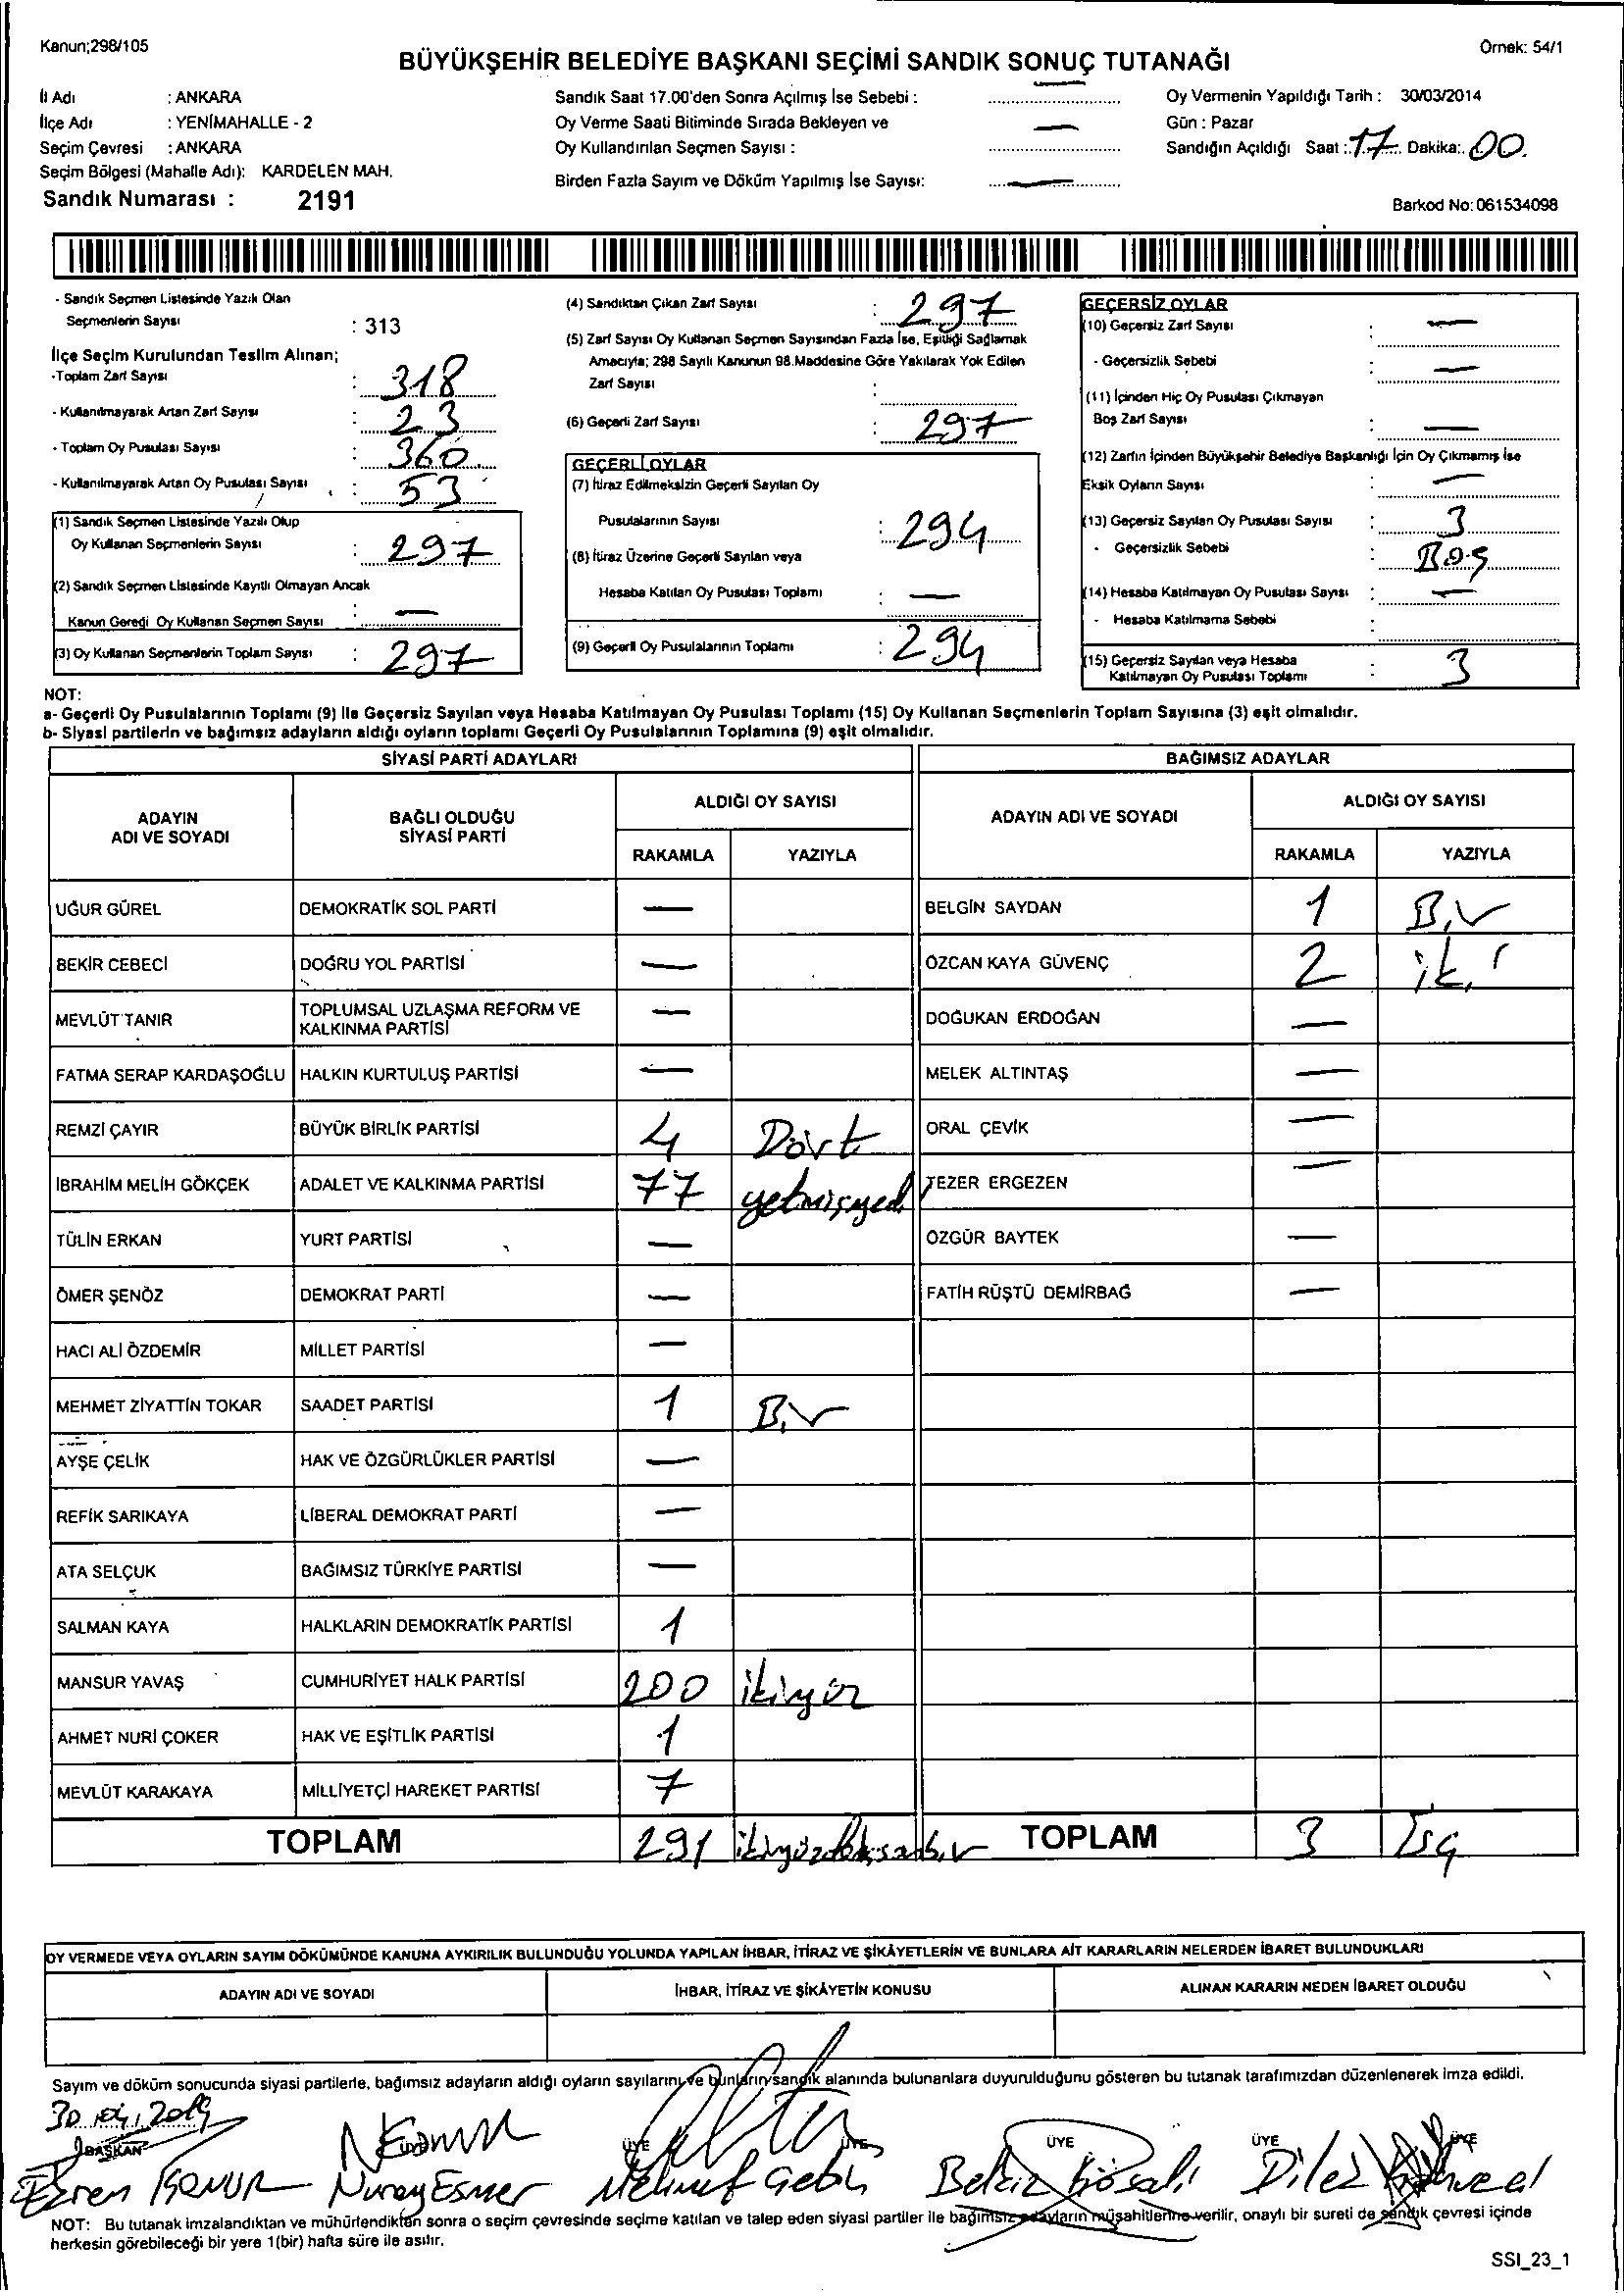 Kanun;298/105
Örnek: 54/1
BÜYÜKŞEHİR BELEDİYE BAŞKANI SEÇİMİ SANDIK SONUÇ TUTANAĞI
İl Adı : ANKARA
İlçe Adı : YENİMAHALLE - 2
Seçim Çevresi : ANKARA
Seçim Bölgesi (Mahalle Adı): KARDELEN MAH.
Sandık Numarası : 2191
Sandık Saat 17.00'den Sonra Açılmış İse Sebebi : —
Oy Verme Saati Bitiminde Sırada Bekleyen ve
Oy Kullandırılan Seçmen Sayısı : —
Birden Fazla Sayım ve Döküm Yapılmış İse Sayısı: —
Oy Vermenin Yapıldığı Tarih : 30/03/2014
Gün : Pazar
Sandığın Açıldığı Saat : 17 Dakika: 00.
Barkod No: 061534098
- Sandık Seçmen Listesinde Yazılı Olan
Seçmenlerin Sayısı : 313
İlçe Seçim Kurulundan Teslim Alınan;
-Toplam Zarf Sayısı : 318
- Kullanılmayarak Artan Zarf Sayısı : 23
- Toplam Oy Pusulası Sayısı : 360
- Kullanılmayarak Artan Oy Pusulası Sayısı : 53
(1) Sandık Seçmen Listesinde Yazılı Olup
Oy Kullanan Seçmenlerin Sayısı : 297
(2) Sandık Seçmen Listesinde Kayıtlı Olmayan Ancak
Kanun Gereği Oy Kullanan Seçmen Sayısı : —
(3) Oy Kullanan Seçmenlerin Toplam Sayısı : 297
(4) Sandıktan Çıkan Zarf Sayısı : 297
(5) Zarf Sayısı Oy Kullanan Seçmen Sayısından Fazla İse, Eşitliği Sağlamak
Amacıyla; 298 Sayılı Kanunun 98.Maddesine Göre Yakılarak Yok Edilen
Zarf Sayısı :
(6) Geçerli Zarf Sayısı : 297
GEÇERLİ OYLAR
(7) İtiraz Edilmeksizin Geçerli Sayılan Oy
Pusulalarının Sayısı : 294
(8) İtiraz Üzerine Geçerli Sayılan veya
Hesaba Katılan Oy Pusulası Toplamı : —
(9) Geçerli Oy Pusulalarının Toplamı : 294
GEÇERSİZ OYLAR
(10) Geçersiz Zarf Sayısı : —
- Geçersizlik Sebebi : —
(11) İçinden Hiç Oy Pusulası Çıkmayan
Boş Zarf Sayısı : —
(12) Zarfın İçinden Büyükşehir Belediye Başkanlığı İçin Oy Çıkmamış İse
Eksik Oyların Sayısı : —
(13) Geçersiz Sayılan Oy Pusulası Sayısı : 3
- Geçersizlik Sebebi : Boş
(14) Hesaba Katılmayan Oy Pusulası Sayısı : —
- Hesaba Katılmama Sebebi :
(15) Geçersiz Sayılan veya Hesaba
Katılmayan Oy Pusulası Toplamı : 3
NOT:
a- Geçerli Oy Pusulalarının Toplamı (9) ile Geçersiz Sayılan veya Hesaba Katılmayan Oy Pusulası Toplamı (15) Oy Kullanan Seçmenlerin Toplam Sayısına (3) eşit olmalıdır.
b- Siyasi partilerin ve bağımsız adayların aldığı oyların toplamı Geçerli Oy Pusulalarının Toplamına (9) eşit olmalıdır.
SİYASİ PARTİ ADAYLARI
BAĞIMSIZ ADAYLAR
ADAYIN
ADI VE SOYADI
BAĞLI OLDUĞU
SİYASİ PARTİ
ALDIĞI OY SAYISI
RAKAMLA YAZIYLA
ADAYIN ADI VE SOYADI
ALDIĞI OY SAYISI
RAKAMLA YAZIYLA
UĞUR GÜREL DEMOKRATİK SOL PARTİ — BELGİN SAYDAN 1 Bir
BEKİR CEBECİ DOĞRU YOL PARTİSİ — ÖZCAN KAYA GÜVENÇ 2 iki
MEVLÜT TANIR TOPLUMSAL UZLAŞMA REFORM VE
KALKINMA PARTİSİ — DOĞUKAN ERDOĞAN —
FATMA SERAP KARDAŞOĞLU HALKIN KURTULUŞ PARTİSİ — MELEK ALTINTAŞ —
REMZİ ÇAYIR BÜYÜK BİRLİK PARTİSİ 4 Dört ORAL ÇEVİK —
İBRAHİM MELİH GÖKÇEK ADALET VE KALKINMA PARTİSİ 77 yetmişyedi TEZER ERGEZEN —
TÜLİN ERKAN YURT PARTİSİ — ÖZGÜR BAYTEK —
ÖMER ŞENÖZ DEMOKRAT PARTİ — FATİH RÜŞTÜ DEMİRBAĞ —
HACI ALİ ÖZDEMİR MİLLET PARTİSİ —
MEHMET ZİYATTİN TOKAR SAADET PARTİSİ 1 Bir
AYŞE ÇELİK HAK VE ÖZGÜRLÜKLER PARTİSİ —
REFİK SARIKAYA LİBERAL DEMOKRAT PARTİ —
ATA SELÇUK BAĞIMSIZ TÜRKİYE PARTİSİ —
SALMAN KAYA HALKLARIN DEMOKRATİK PARTİSİ 1
MANSUR YAVAŞ CUMHURİYET HALK PARTİSİ 200 ikiyüz
AHMET NURİ ÇOKER HAK VE EŞİTLİK PARTİSİ 1
MEVLÜT KARAKAYA MİLLİYETÇİ HAREKET PARTİSİ 7
TOPLAM 291 ikiyüzdoksanbir TOPLAM 3 Üç
OY VERMEDE VEYA OYLARIN SAYIM DÖKÜMÜNDE KANUNA AYKIRILIK BULUNDUĞU YOLUNDA YAPILAN İHBAR, İTİRAZ VE ŞİKÂYETLERİN VE BUNLARA AİT KARARLARIN NELERDEN İBARET BULUNDUKLARI
ADAYIN ADI VE SOYADI İHBAR, İTİRAZ VE ŞİKÂYETİN KONUSU ALINAN KARARIN NEDEN İBARET OLDUĞU
Sayım ve döküm sonucunda siyasi partilerle, bağımsız adayların aldığı oyların sayılarını ve bunların sandık alanında bulunanlara duyurulduğunu gösteren bu tutanak tarafımızdan düzenlenerek imza edildi.
30.04.2014
BAŞKAN ÜYE ÜYE ÜYE ÜYE
Nuray Esmer Mehmet
NOT: Bu tutanak imzalandıktan ve mühürlendikten sonra o seçim çevresinde seçime katılan ve talep eden siyasi partiler ile bağımsız adayların müşahitlerine verilir, onaylı bir sureti de sandık çevresi içinde
herkesin görebileceği bir yere 1(bir) hafta süre ile asılır.
SSI_23_1